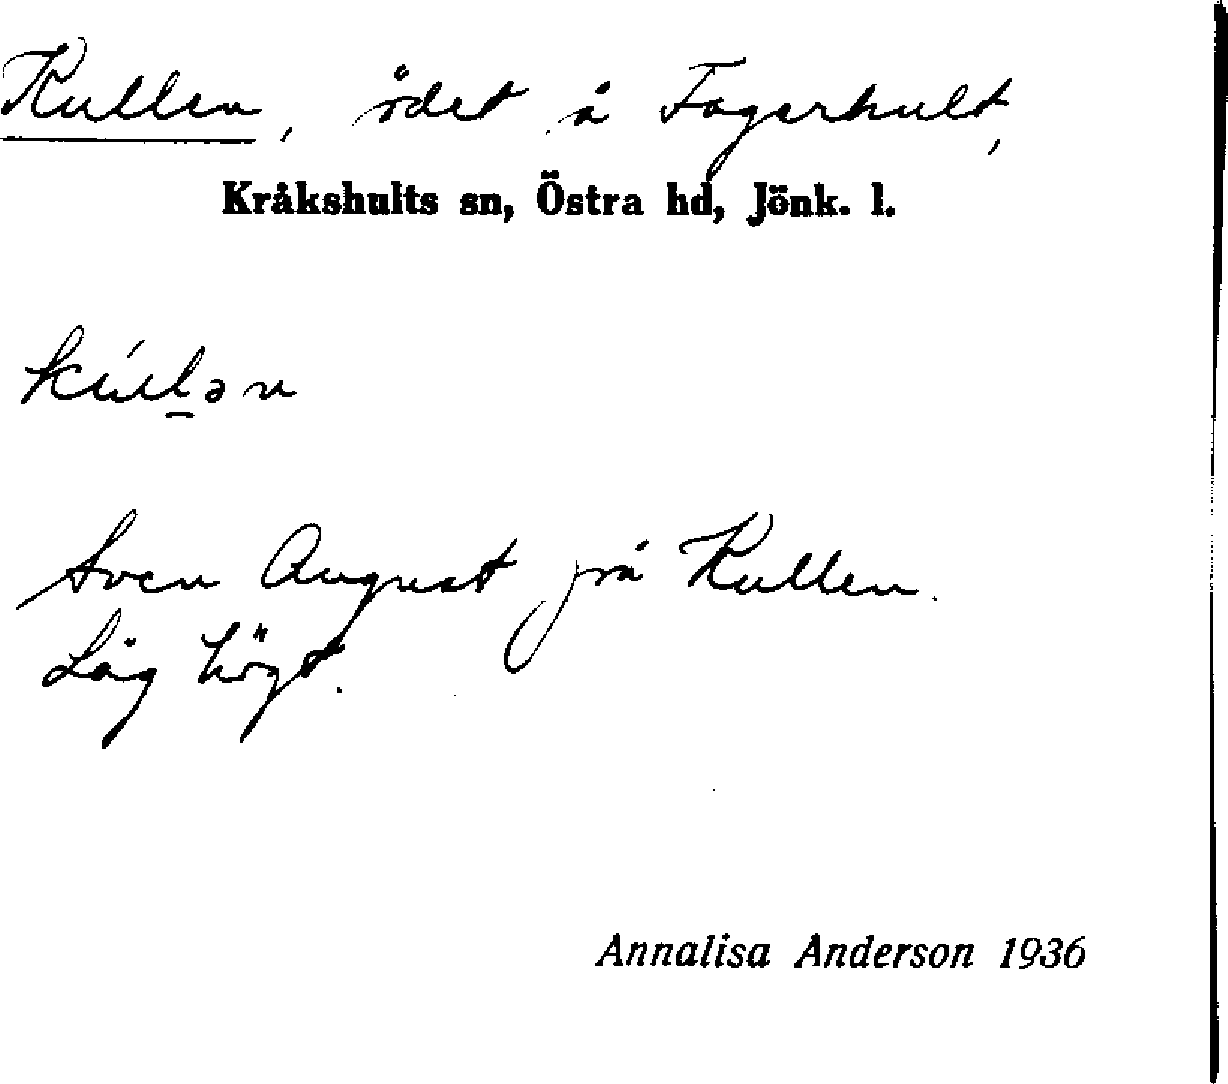 Kullen, ödet å Fagerhult,
Kråkshults sn, Östra hd, Jönk. l.
kúl̲ən
Sven August på Kullen.
Låg högt.
Annalisa Anderson 1936